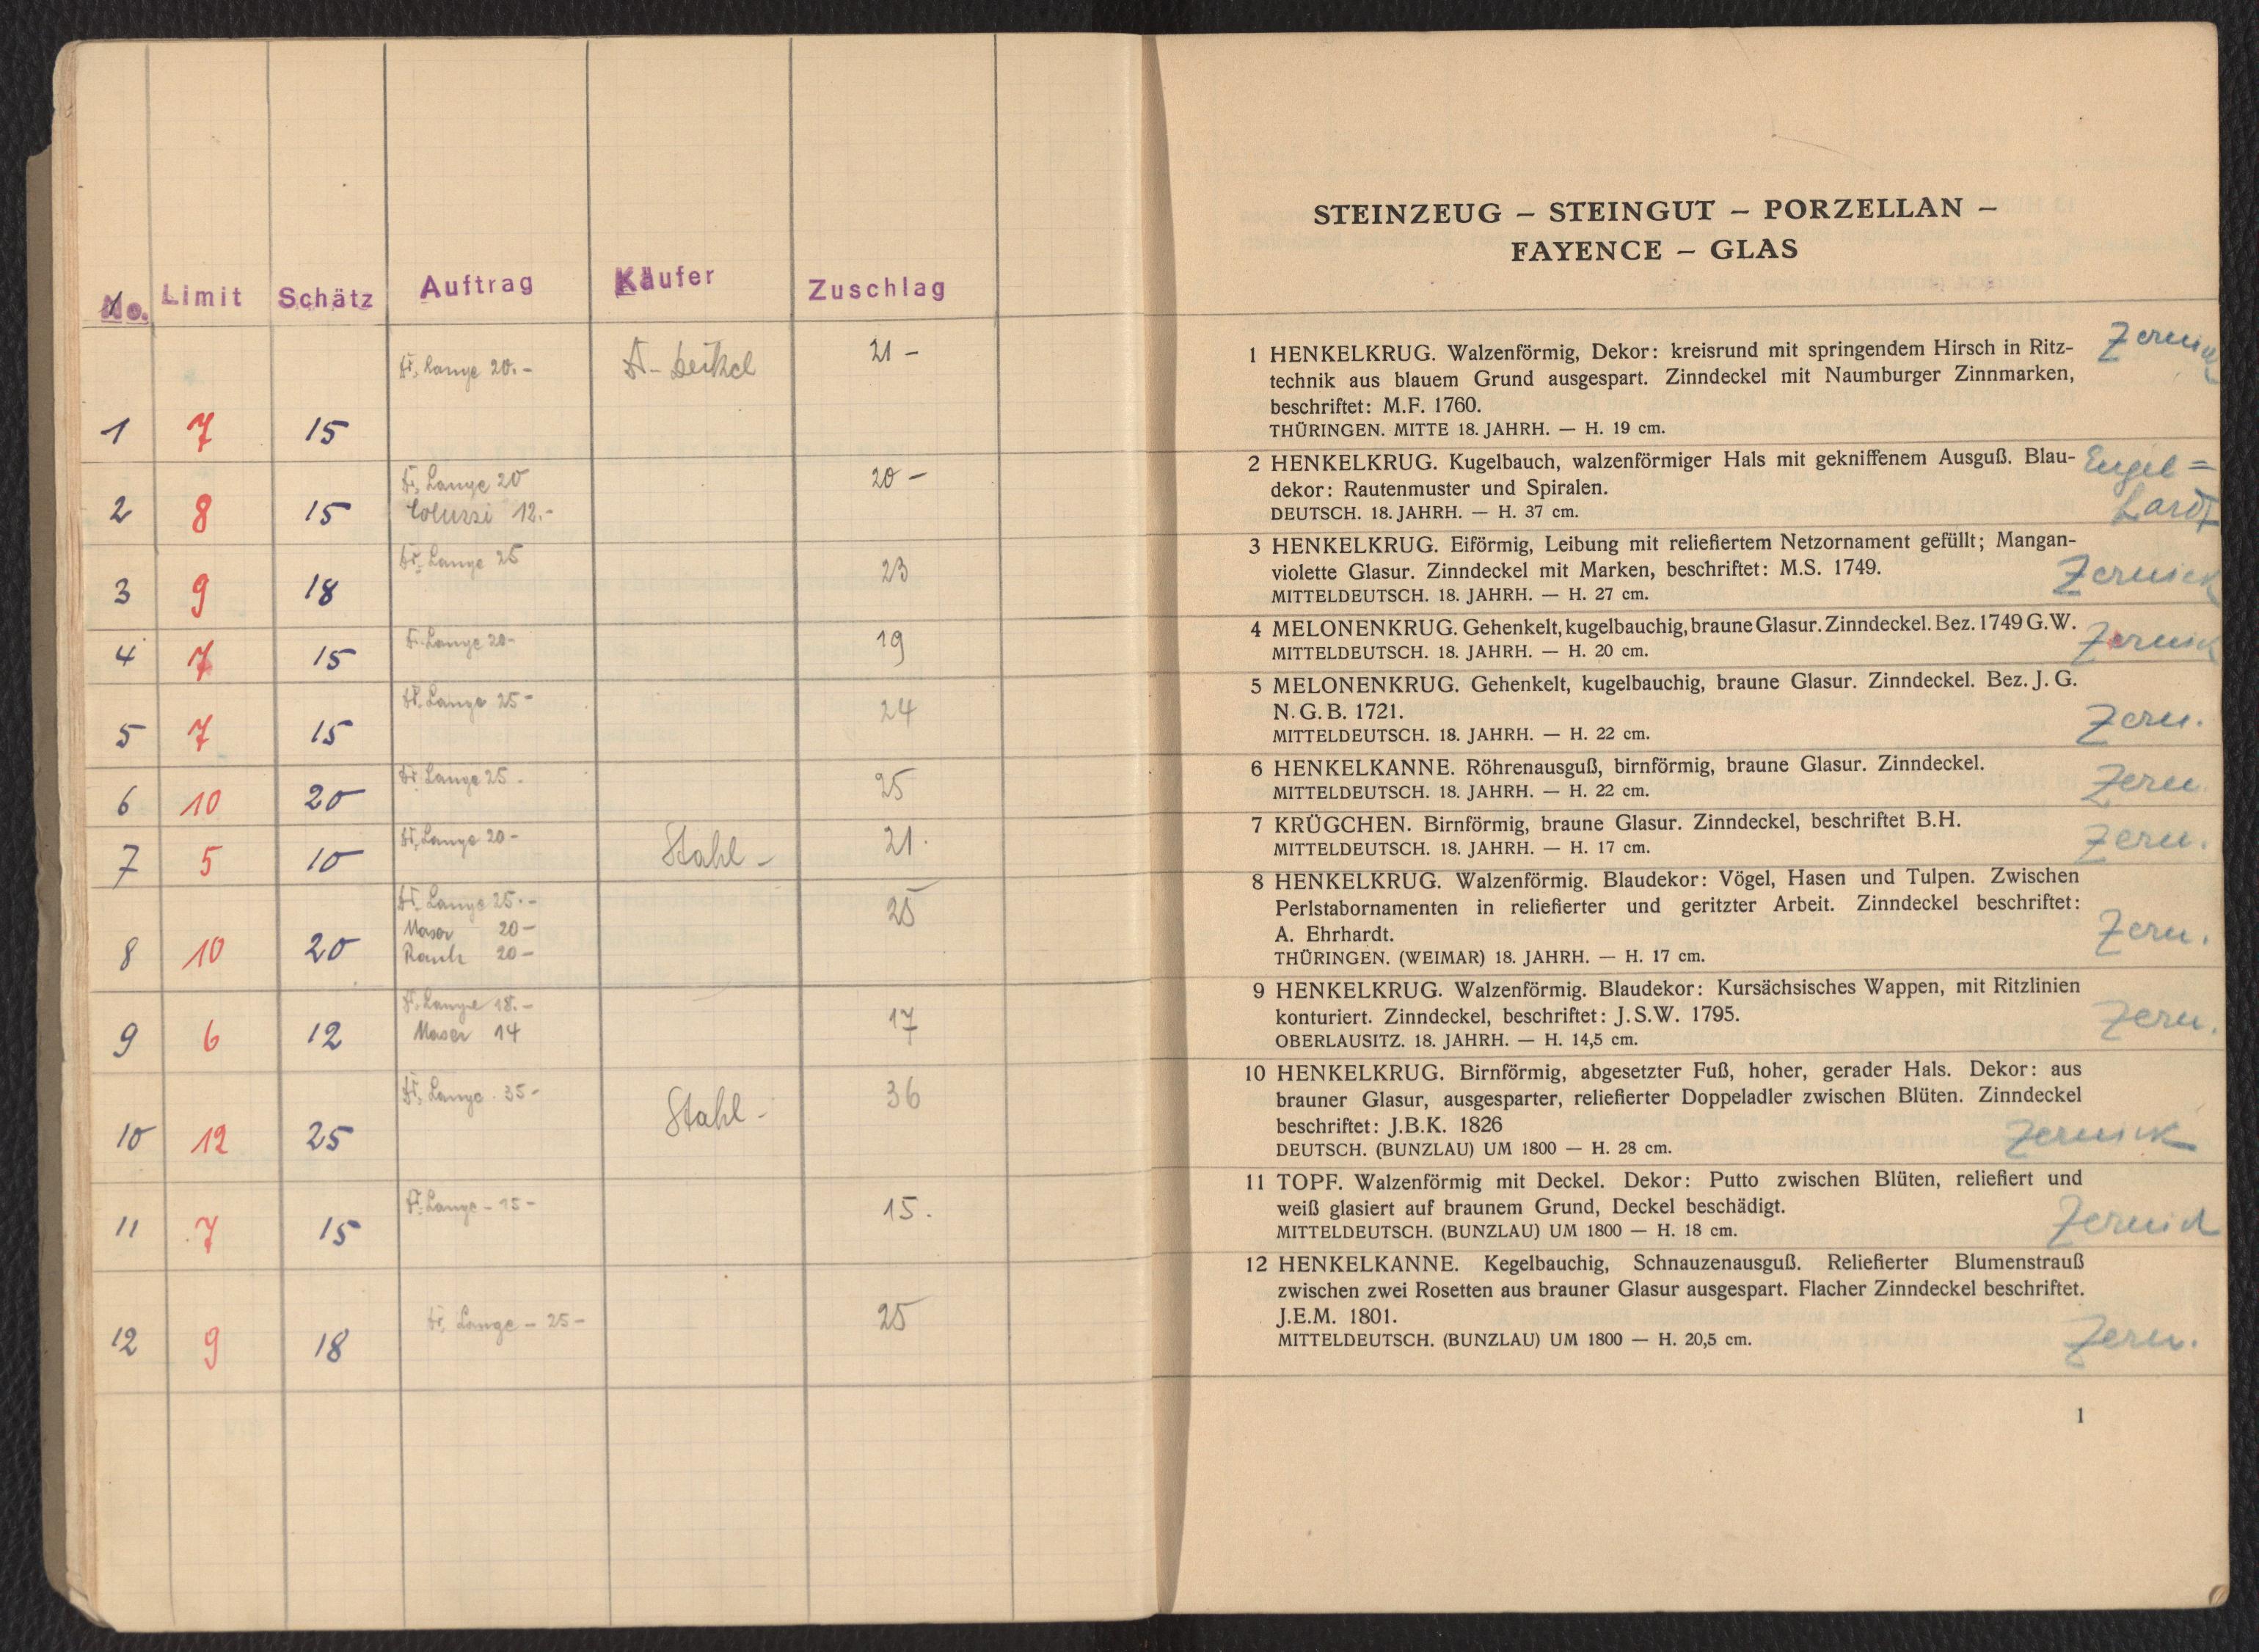 No. Limit Schätz Auftrag Käufer Zuschlag
Lange 20.- 21 -
1 7 15
Lange 20 20 -
2 8 15 Coluzzi 12.-
Lange 25
3 9 18 23
4 7 15 Lange 20- 19
Lange 25 -
5 7 15 24
6 10 20 Lange 25 - 25
7 5 10 Lange 20 - Stahl - 21.
Lange 25.- 25
Maser 20 -
8 10 20 Rauch 20 -
Lange 18.-
9 6 12 Maser 14 17
Lange 35 - 36
10 12 25 Stahl -
11 7 15 Lange - 15 - 15.
12 9 18 Lange - 25 - 25
STEINZEUG – STEINGUT – PORZELLAN –
FAYENCE – GLAS
1 HENKELKRUG. Walzenförmig, Dekor: kreisrund mit springendem Hirsch in Ritz-
technik aus blauem Grund ausgespart. Zinndeckel mit Naumburger Zinnmarken,
beschriftet: M.F. 1760.
THÜRINGEN. MITTE 18. JAHRH. — H. 19 cm.
Zernick
2 HENKELKRUG. Kugelbauch, walzenförmiger Hals mit gekniffenem Ausguß. Blau-
dekor: Rautenmuster und Spiralen.
DEUTSCH. 18. JAHRH. — H. 37 cm.
Engel=
hardt
3 HENKELKRUG. Eiförmig, Leibung mit reliefiertem Netzornament gefüllt; Mangan-
violette Glasur. Zinndeckel mit Marken, beschriftet: M.S. 1749.
MITTELDEUTSCH. 18. JAHRH. — H. 27 cm.
Zernick
4 MELONENKRUG. Gehenkelt, kugelbauchig, braune Glasur. Zinndeckel. Bez. 1749 G.W.
MITTELDEUTSCH. 18. JAHRH. — H. 20 cm.
Zernick
5 MELONENKRUG. Gehenkelt, kugelbauchig, braune Glasur. Zinndeckel. Bez. J. G.
N. G. B. 1721.
MITTELDEUTSCH. 18. JAHRH. — H. 22 cm.
Zern.
6 HENKELKANNE. Röhrenausguß, birnförmig, braune Glasur. Zinndeckel.
MITTELDEUTSCH. 18. JAHRH. — H. 22 cm.
Zern.
7 KRÜGCHEN. Birnförmig, braune Glasur. Zinndeckel, beschriftet B.H.
MITTELDEUTSCH. 18. JAHRH. — H. 17 cm.
Zern.
8 HENKELKRUG. Walzenförmig. Blaudekor: Vögel, Hasen und Tulpen. Zwischen
Perlstabornamenten in reliefierter und geritzter Arbeit. Zinndeckel beschriftet:
A. Ehrhardt.
THÜRINGEN. (WEIMAR) 18. JAHRH. — H. 17 cm.
Zern.
9 HENKELKRUG. Walzenförmig. Blaudekor: Kursächsisches Wappen, mit Ritzlinien
konturiert. Zinndeckel, beschriftet: J.S.W. 1795.
OBERLAUSITZ. 18. JAHRH. — H. 14,5 cm.
Zern.
10 HENKELKRUG. Birnförmig, abgesetzter Fuß, hoher, gerader Hals. Dekor: aus
brauner Glasur, ausgesparter, reliefierter Doppeladler zwischen Blüten. Zinndeckel
beschriftet: J.B.K. 1826
DEUTSCH. (BUNZLAU) UM 1800 — H. 28 cm.
Zernick
11 TOPF. Walzenförmig mit Deckel. Dekor: Putto zwischen Blüten, reliefiert und
weiß glasiert auf braunem Grund, Deckel beschädigt.
MITTELDEUTSCH. (BUNZLAU) UM 1800 — H. 18 cm.
Zernick
12 HENKELKANNE. Kegelbauchig, Schnauzenausguß. Reliefierter Blumenstrauß
zwischen zwei Rosetten aus brauner Glasur ausgespart. Flacher Zinndeckel beschriftet.
J.E.M. 1801.
MITTELDEUTSCH. (BUNZLAU) UM 1800 — H. 20,5 cm.
Zern.
1